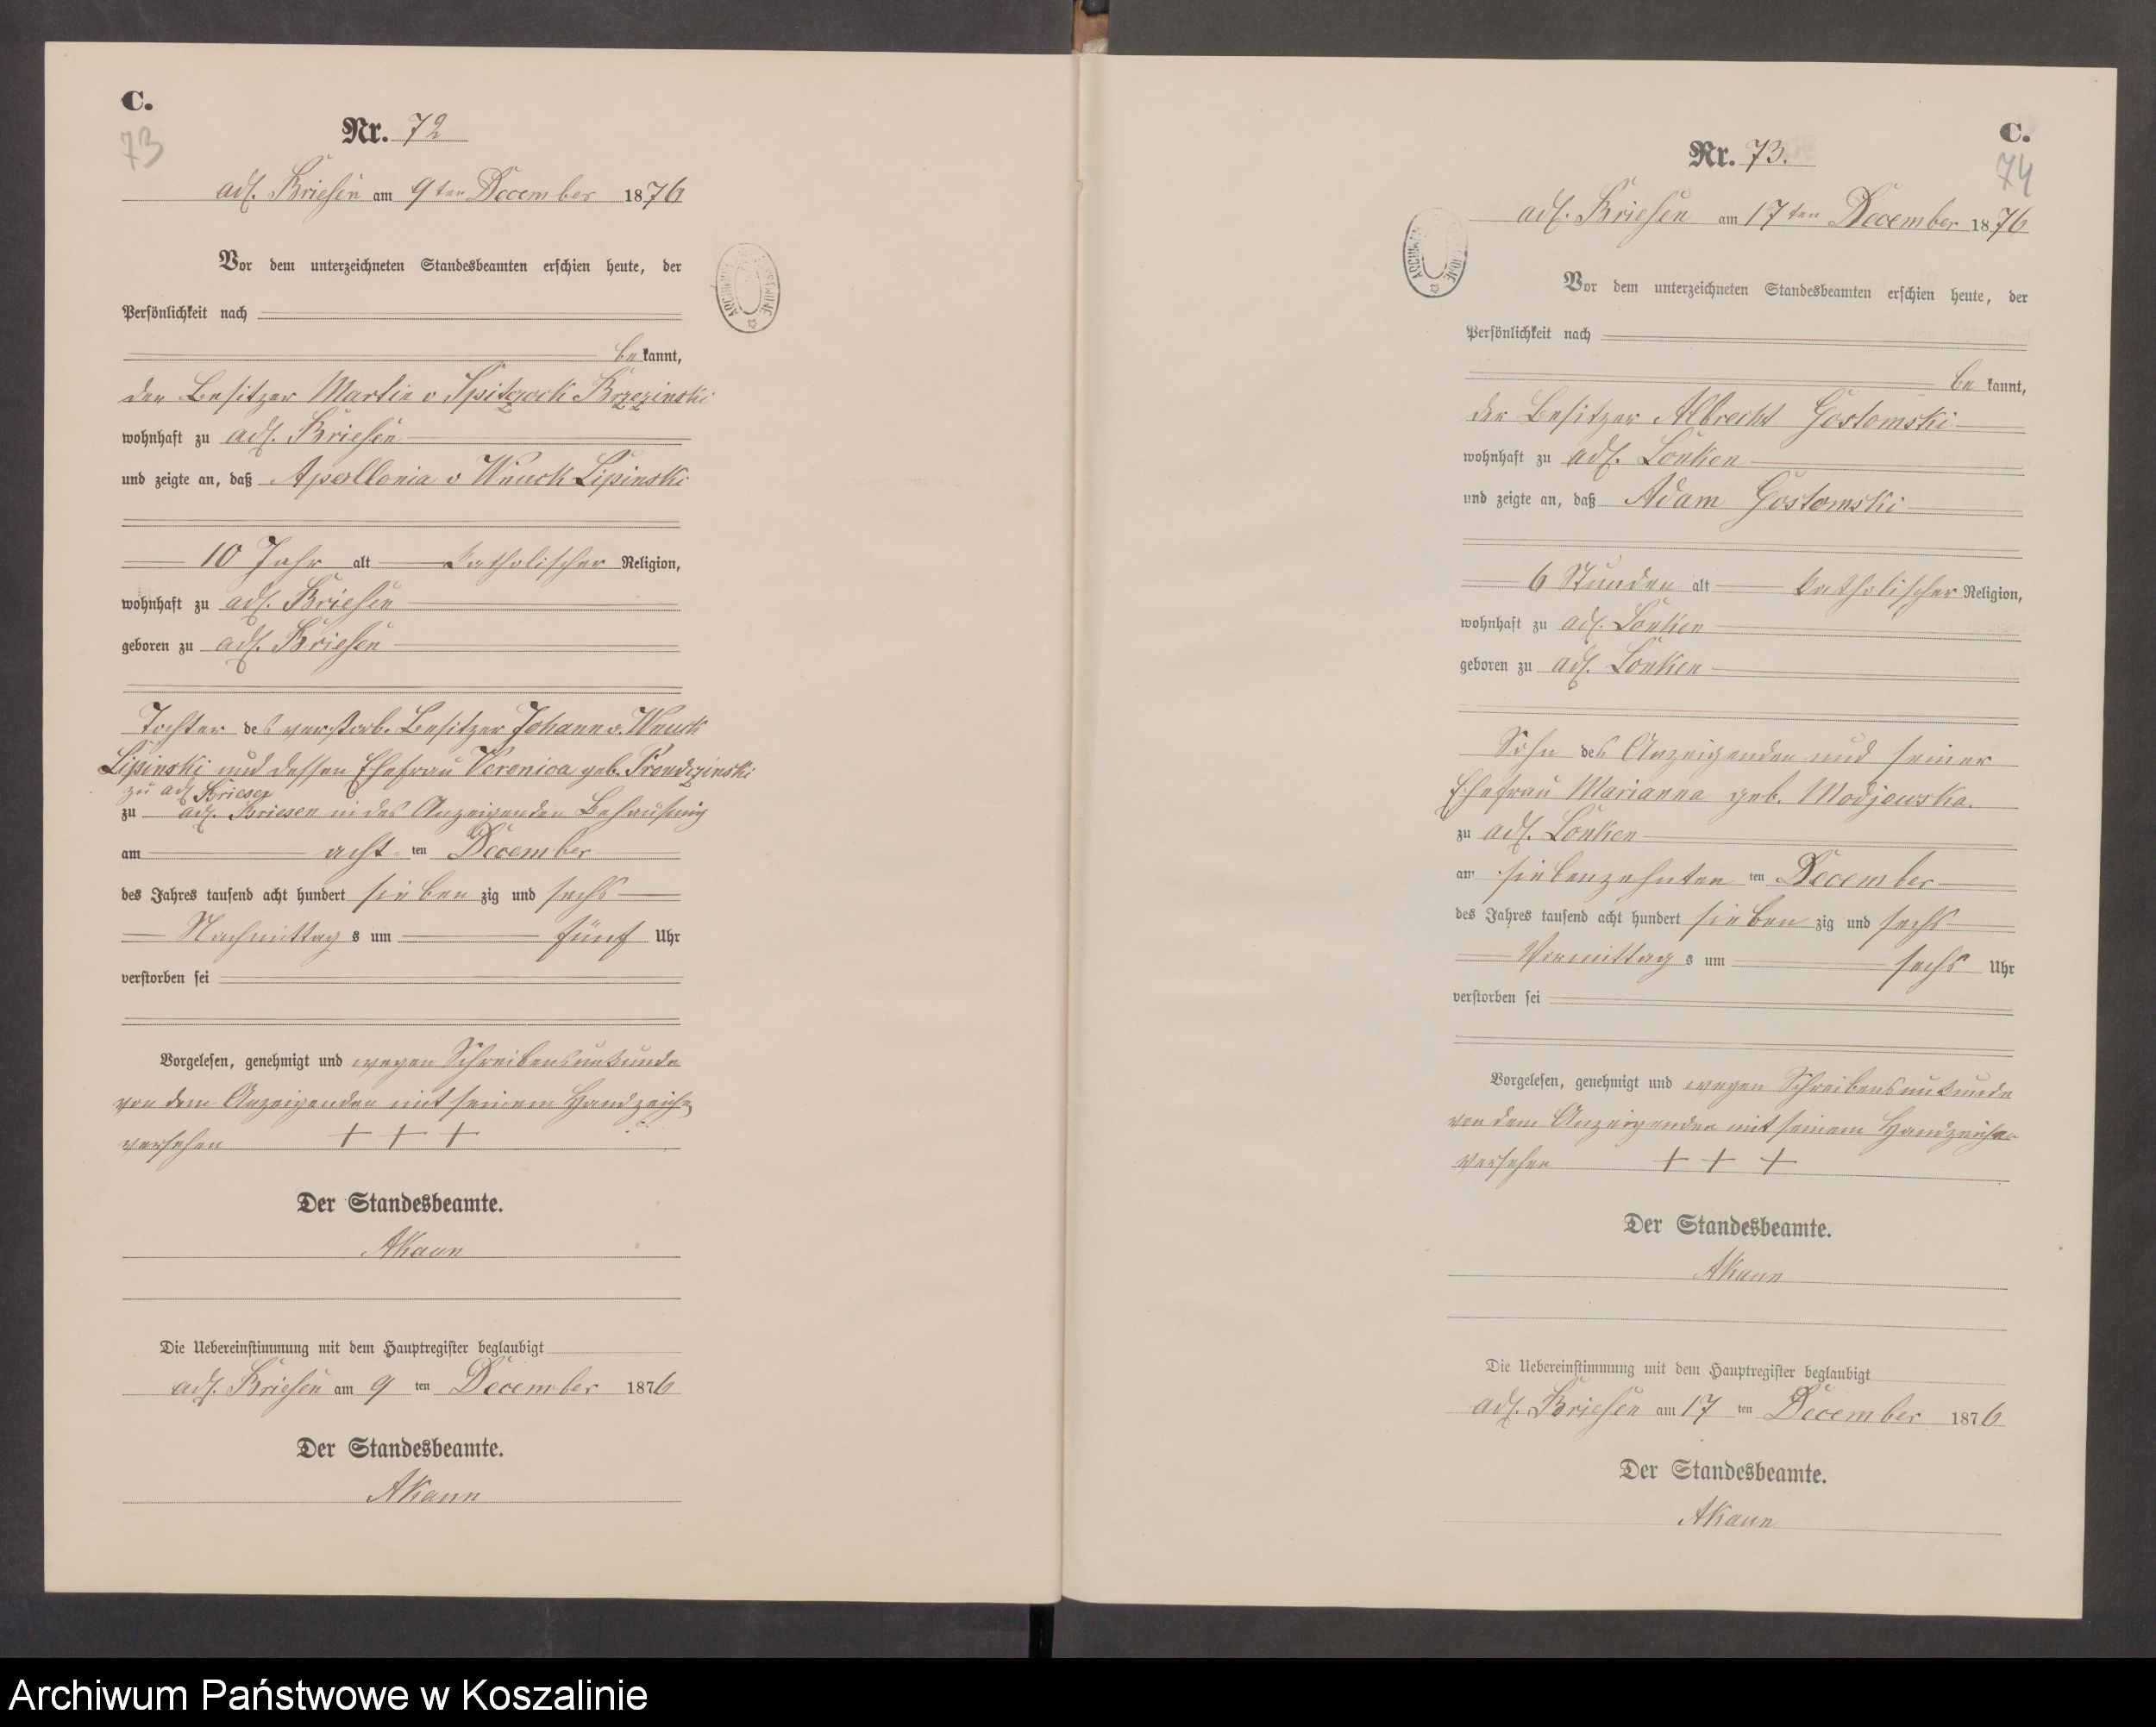 C.
73
Nr. 72
adl. Briesen am 9ten December 1876
Vor dem unterzeichneten Standesbeamten erschien heute, der
Persönlichkeit nach
be kannt,
der Besitzer Martin v Spitzack Brzezinski
wohnhaft zu adl. Briesen
und zeigte an, daß Apollonia v Wnuck Lipinski
10 Jahr alt katholischer Religion,
wohnhaft zu adl. Briesen
geboren zu adl. Briesen
Tochter des verstorb. Besitzer Johann v. Wnuck
Lipinski und dessen Ehefrau Veronica geb. Prondzinski
zu adl Briesen
zu adl. Briesen in des Anzeigenden Behausung
am acht ten December
des Jahres tausend acht hundert sieben zig und sechs
Nachmittag s um fünf Uhr
verstorben sei
Vorgelesen, genehmigt und wegen Schreibensunkunde
von dem Anzeigenden mit seinem Handzeichen
versehen + + +
Der Standesbeamte.
AKaun
Die Uebereinstimmung mit dem Hauptregister beglaubigt
adl. Briesen am 9 ten December 1876
Der Standesbeamte.
AKaun
C.
74
Nr. 73.
adl. Briesen am 17ten December 1876
Vor dem unterzeichneten Standesbeamten erschien heute, der
Persönlichkeit nach
be kannt,
der Besitzer Albrecht Gostomski
wohnhaft zu adl. Lonken
und zeigte an, daß Adam Gostomski
6 Stunden alt katholischer Religion,
wohnhaft zu adl. Lonken
geboren zu adl. Lonken
Sohn des Anzeigenden und seiner
Ehefrau Marianna geb. Modjewska.
zu adl. Lonken
am siebenzehnten ten December
des Jahres tausend acht hundert sieben zig und sechs
Vormittag s um sechs Uhr
verstorben sei
Vorgelesen, genehmigt und wegen Schreibensunkunde
von dem Anzeigenden mit seinem Handzeichen
versehen + + +
Der Standesbeamte.
AKaun
Die Uebereinstimmung mit dem Hauptregister beglaubigt
adl. Briesen am 17 ten December 1876
Der Standesbeamte.
AKaun
Archiwum Państwowe w Koszalinie